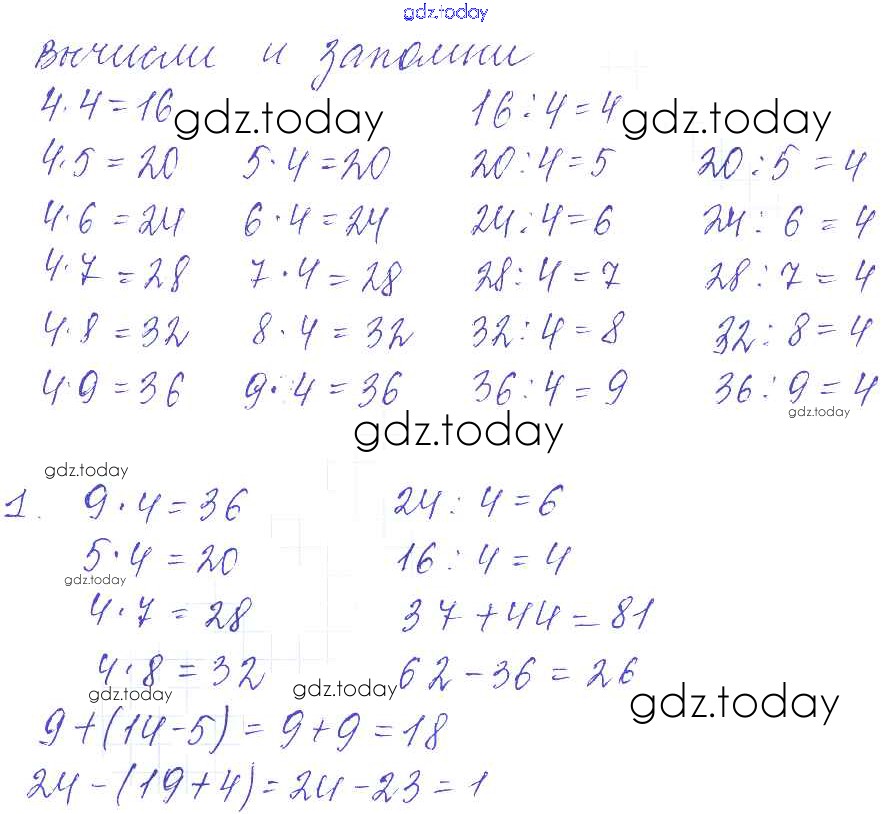 gdz.today
Вычисли и запомни
4·4=16 gdz.today 16:4=4 gdz.today
4·5=20 5·4=20 20:4=5 20:5=4
4·6=24 6·4=24 24:4=6 24:6=4
4·7=28 7·4=28 28:4=7 28:7=4
4·8=32 8·4=32 32:4=8 32:8=4
4·9=36 9·4=36 36:4=9 36:9=4
gdz.today
gdz.today
gdz.today
1. 9·4=36 24:4=6
5·4=20 16:4=4
gdz.today
4·7=28 37+44=81
4·8=32 62-36=26
gdz.today gdz.today gdz.today
9+(14-5)=9+9=18
24-(19+4)=24-23=1